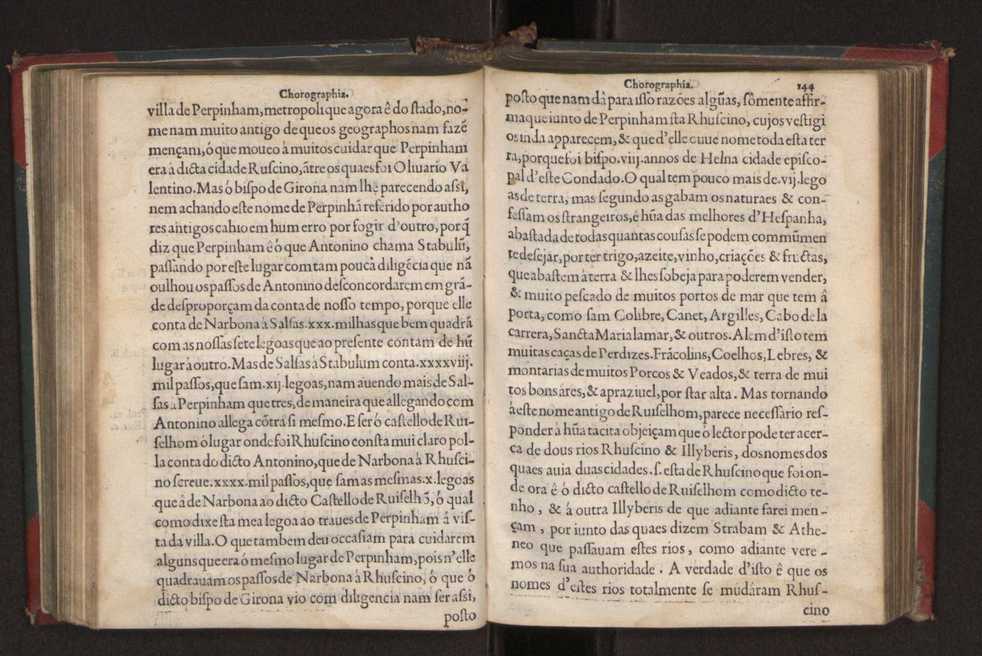 Chorographia.
villa de Perpinham, metropoli que agora ê do stado, no-
me nam muito antigo de que os geographos nam fazẽ
mençam, ó que moueo à muitos cuidar que Perpinham
era à dicta cidade Ruscino, ãtre os quaes foi Oliuario Va
lentino. Mas ó bispo de Girona nam lhe parecendo assi,
nem achando este nome de Perpinhã referido por autho
res antigos cahio em hum erro por fogir d'outro, porq̃
diz que Perpinham ê ó que Antonino chama Stabulũ,
passando por este lugar com tam pouca diligẽcia que nã
oulhou os passos de Antonino desconcordarem em grã-
de desproporçam da conta de nosso tempo, porque elle
conta de Narbona à Salsas .xxx. milhas que bem quadrã
com as nossas sete legoas que ao presente contam de hũ
lugar à outro. Mas de Salsas à Stabulum conta .xxxxviij.
mil passos, que sam .xij. legoas, nam auendo mais de Sal-
sas à Perpinham que tres, de maneira que allegando com
Antonino allega cõtra si mesmo. E ser ó castello de Rui-
selhom ó lugar onde foi Rhuscino consta mui claro pol-
la conta do dicto Antonino, que de Narbona à Rhusci-
no screue .xxxx. mil passos, que sam as mesmas .x. legoas
que à de Narbona ao dicto Castello de Ruiselhõ, ó qual
como dixe sta mea legoa ao traues de Perpinham â vis-
ta da villa. O que tambem deu occasiam para cuidarem
alguns que era ó mesmo lugar de Perpinham, pois n'elle
quadrauam os passos de Narbona à Rhuscino, ó que ó
dicto bispo de Girona vio com diligencia nam ser assi,
posto
Chorographia. 144
posto que nam dâ para isso razões algũas, sômente affir-
ma que iunto de Perpinham sta Rhuscino, cujos vestigi
os inda apparecem, & que d'elle ouue nome toda esta ter
ra, porque foi bispo .viij. annos de Helna cidade episco-
pal d'este Condado. O qual tem pouco mais de .vij. lego
as de terra, mas segundo as gabam os naturaes & con-
fessam os strangeiros, é hũa das melhores d'Hespanha,
abastada de todas quantas cousas se podem commũmen
te desejar, por ter trigo, azeite, vinho, criações & fructas,
que abastem à terra & lhes sobeja para poderem vender,
& muito pescado de muitos portos de mar que tem â
porta, como sam Colibre, Canet, Argilles, Cabo de la
carrera, Sancta Maria lamar, & outros. Alem d'isto tem
muitas caças de Perdizes. Frãcolins, Coelhos, Lebres, &
montarias de muitos Porcos & Veados, & terra de mui
tos bons ares, & aprazíuel, por star alta. Mas tornando
à este nome antigo de Ruiselhom, parece necessario res-
ponder à hũa tacita objeiçam que ó lector pode ter acer-
ca de dous rios Rhuscino & Illyberis, dos nomes dos
quaes auia duas cidades. s. esta de Rhuscino que foi on-
de ora ê ó dicto castello de Ruiselhom como dicto te-
nho, & à outra Illyberis de que adiante farei men-
çam, por iunto das quaes dizem Strabam & Athe-
neo que passauam estes rios, como adiante vere-
mos na sua authoridade. A verdade d'isto ê que os
nomes d'estes rios totalmente se mudáram Rhus-
cino